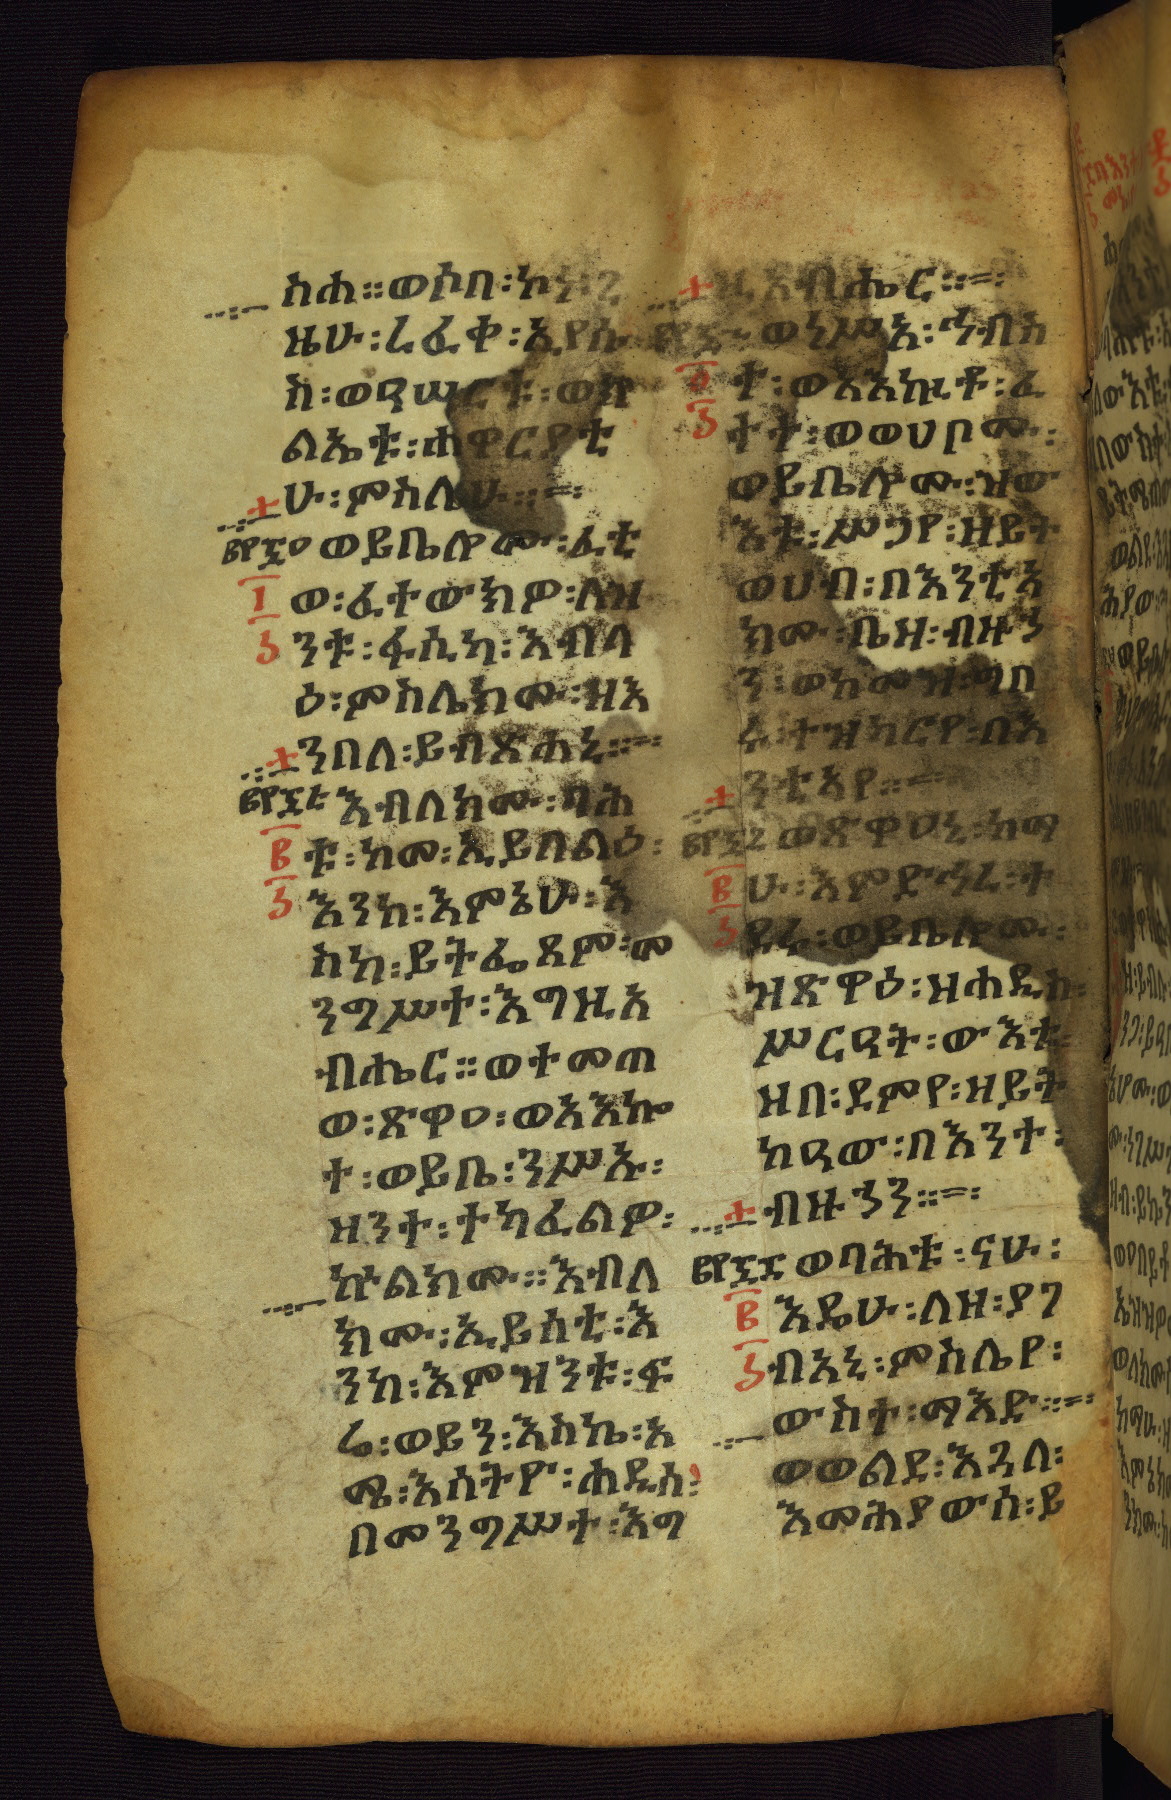 ስሐ ። ወሶበ ፡ ኮነ ፡ ጊ
ዜሁ ፡ ረፈቀ ፡ ኢየሱ
ስ ፡ ወዓሠርቱ ፡ ወክ
ልኤቱ ፡ ሐዋርያቲ
ሁ ፡ ምስሌሁ ። = ፡
፪፻፷፭ ወይቤሎሙ ፡ ፈቲ
፩
ወ ፡ ፈተውክዎ ፡ ለዝ
ንቱ ፡ ፋሲካ ፡ እብላ
ዕ ፡ ምስሌክሙ ፡ ዘእ
ንበለ ፡ ይብጽሐኒ ። = ፡
እብለክሙ ፡ ባሕ
፪
ቱ ፡ ከመ ፡ ኢይበልዕ ፡
እንከ ፡ እምኔሁ ፡ እ
ስከ ፡ ይትፌጸም ፡ መ
ንግሥተ ፡ እግዚአ
ብሔር ። ወተመጠ
ወ ፡ ጽዋዐ ፡ ወአእኰ
ተ ፡ ወይቤ ፡ ንሥኡ ፡
ዘንተ ፡ ተካፈልዎ ፡
ኵልክሙ ። እብለ
ክሙ ፡ ኢይሰቲ ፡ እ
ንከ ፡ እምዝንቱ ፡ ፍ
ሬ ፡ ወይን ፡ እስከ ፡ አ
መ ፡ እሰትዮ ፡ ሐዲሰ ፡
በመንግሥተ ፡ እግ
ዚአብሔር ። = ፡
ወነሥአ ፡ ኅብስ
ተ ፡ ወአእኰቶ ፡ ፈ
ተተ ፡ ወወሀቦሙ ፡
ወይቤሎሙ ፡ ዝው
እቱ ፡ ሥጋየ ፡ ዘይት
ወሀብ ፡ በእንቲአ
ክሙ ፡ ቤዛ ፡ ብዙኃ
ን ፡ ወከመዝ ፡ ግበ
ሩ ፡ ተዝካርየ ፡ በእ
ንቲአየ ። =
ወጽዋዐኒ ፡ ከማ
፪
ሁ ፡ እምድኅረ ፡ ተ
ደሩ ፡ ወይቤሎሙ ፡
ዝጽዋዕ ፡ ዘሐዲስ ፡
ሥርዓት ፡ ውእቱ ፡
ዘበ ፡ ደምየ ፡ ዘይት
ከዓው ፡ በእንተ ፡
ብዙኃን ። = ፡
ወባሕቱ ፡ ናሁ ፡
፪
እዴሁ ፡ ለዘ ፡ ያገ
ብአኒ ፡ ምስሌየ ፡
ውስተ ፡ ማእድ ። = ፡
ወወልደ ፡ እጓለ ፡
እመሕያውሰ ፡ ይ